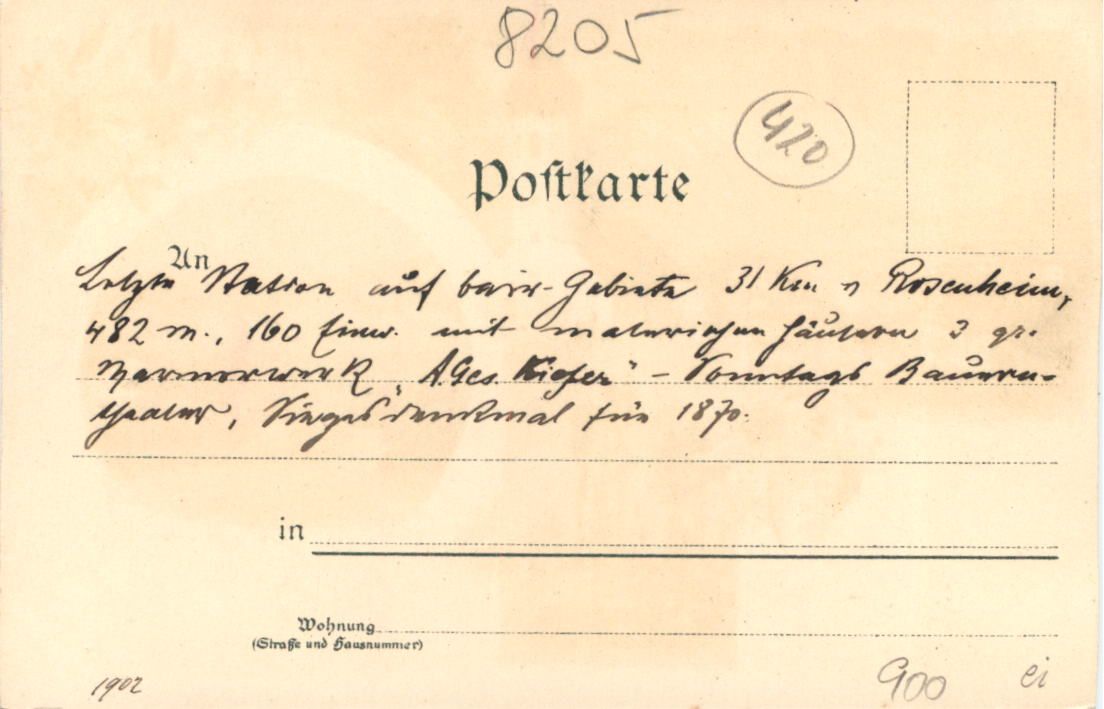 8205
420
Postkarte
An
Letzte Station auf bair. Gebiete 31 Km v Rosenheim,
482 m., 160 Einw. mit malerischen Häusern 3 gr.
Marmorwerk „A. Ges. Kiefer" – Sonntags Bauern-
theater, Siegesdenkmal für 1870.
in
Wohnung
(Straße und Hausnummer)
1902
900
ei